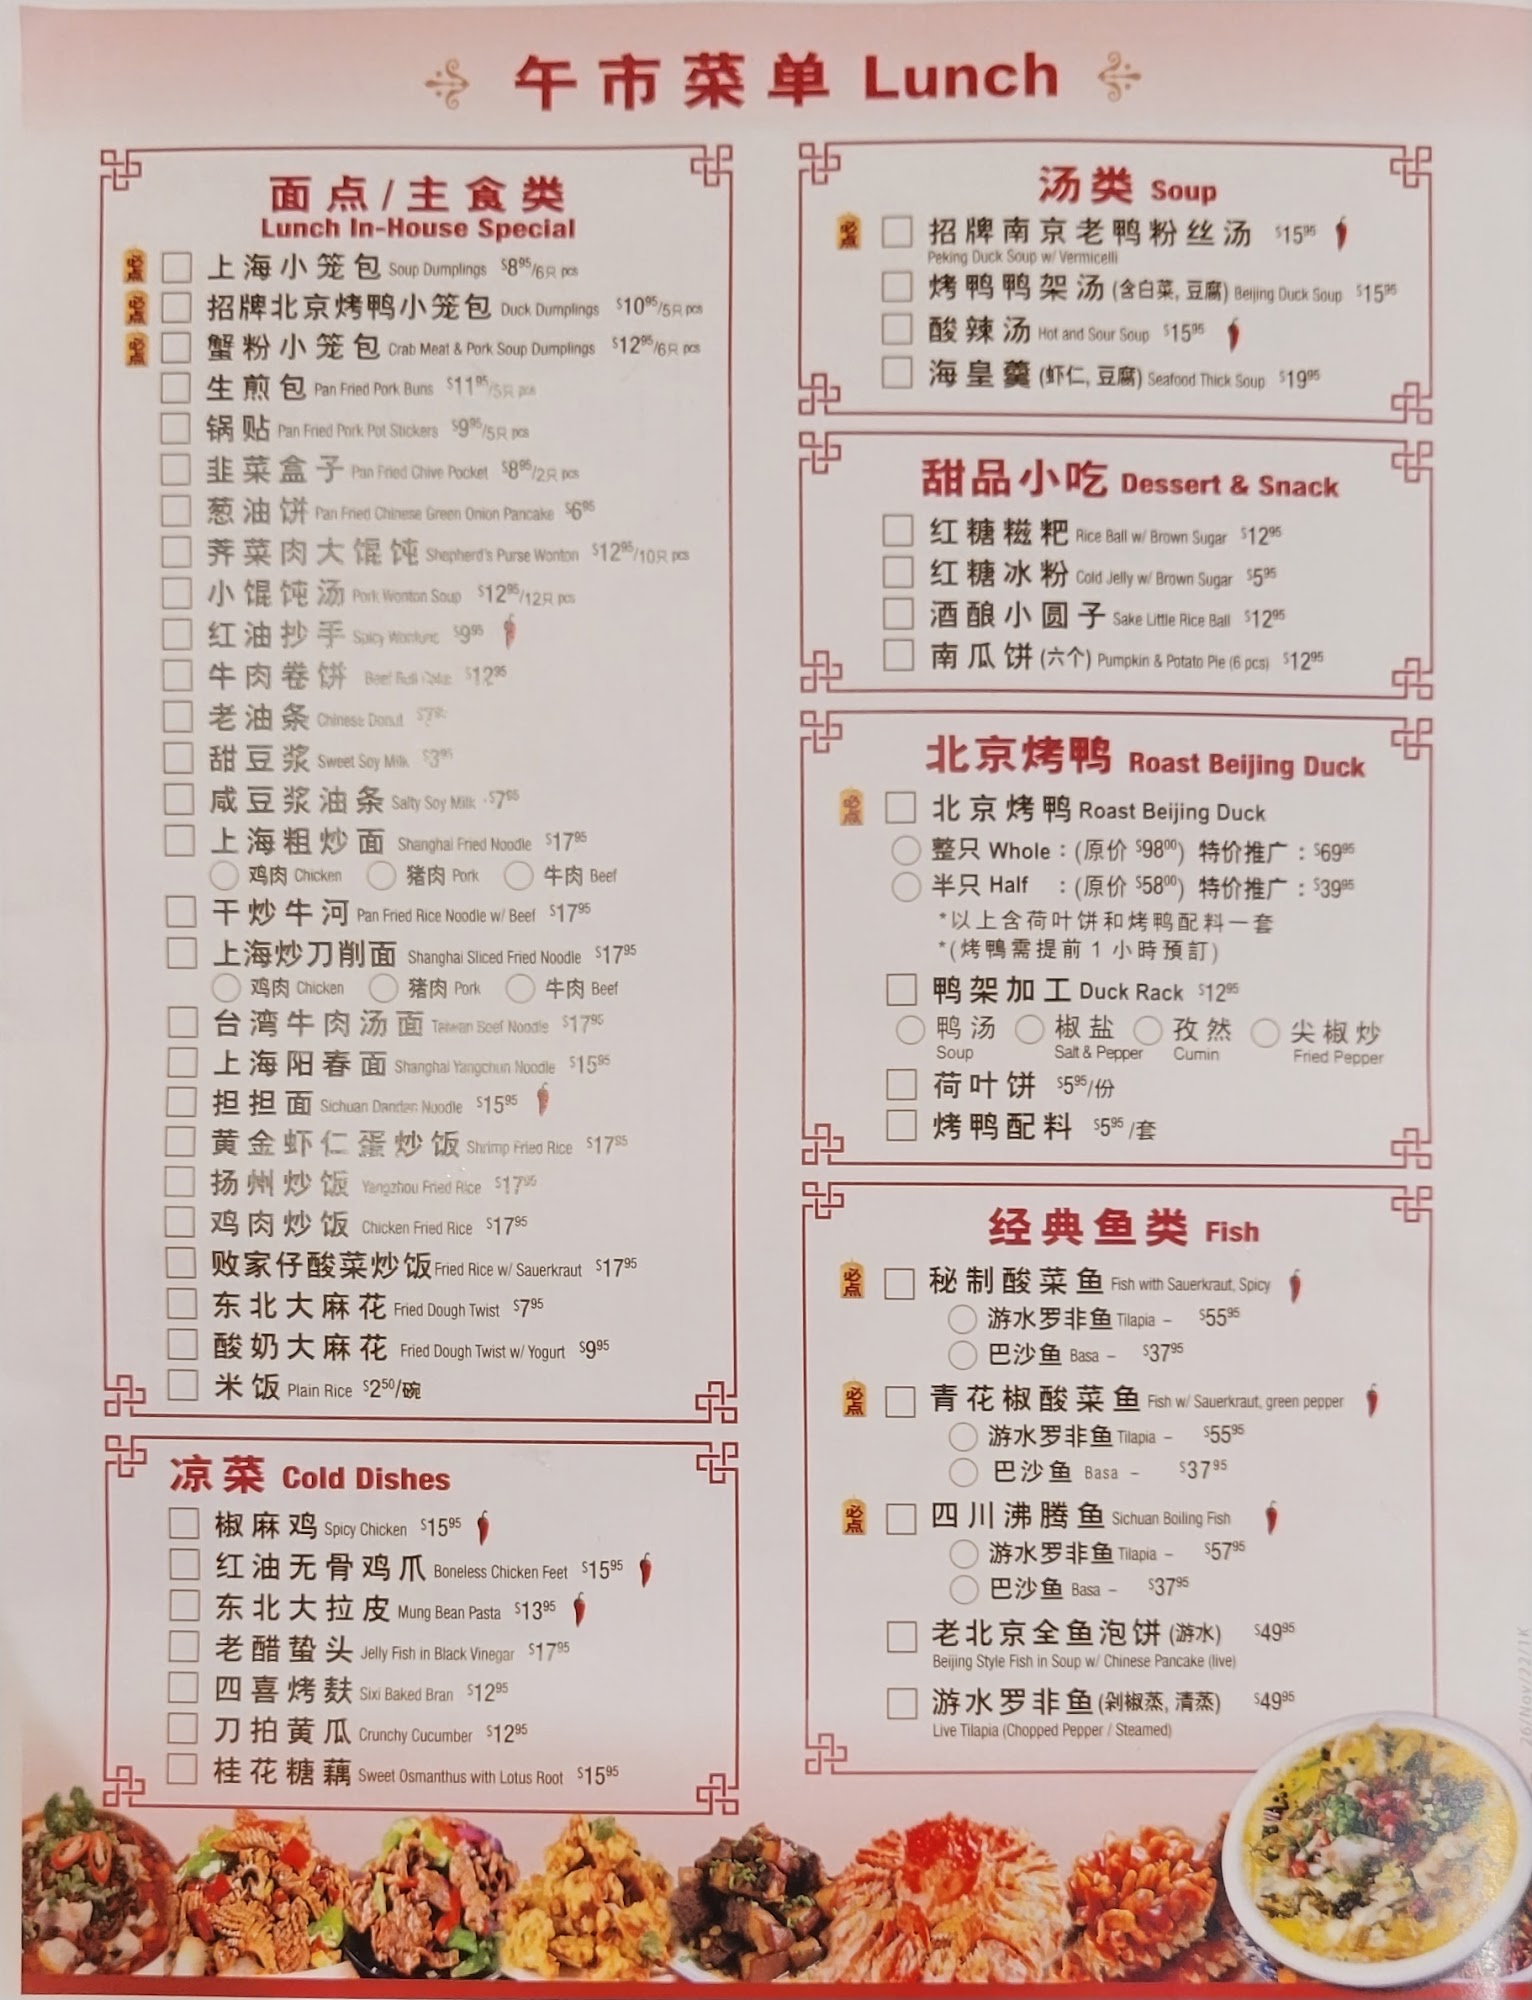 午市菜单 Lunch
面点/主食类
Lunch In-House Special
必点 上海小笼包 Soup Dumplings $8.95/6只 pcs
必点 招牌北京烤鸭小笼包 Duck Dumplings $10.95/5只 pcs
必点 蟹粉小笼包 Crab Meat & Pork Soup Dumplings $12.95/6只 pcs
生煎包 Pan Fried Pork Buns $11.95/5只 pcs
锅贴 Pan Fried Pork Pot Stickers $9.95/5只 pcs
韭菜盒子 Pan Fried Chive Pocket $8.95/2只 pcs
葱油饼 Pan Fried Chinese Green Onion Pancake $6.95
荠菜肉大馄饨 Shepherd's Purse Wonton $12.95/10只 pcs
小馄饨汤 Pork Wonton Soup $12.95/12只 pcs
红油抄手 Spicy Wontons $9.95
牛肉卷饼 Beef Roll Cake $12.95
老油条 Chinese Donut
甜豆浆 Sweet Soy Milk $3.95
咸豆浆油条 Salty Soy Milk $7.95
上海粗炒面 Shanghai Fried Noodle $17.95
鸡肉 Chicken 猪肉 Pork 牛肉 Beef
干炒牛河 Pan Fried Rice Noodle w/ Beef $17.95
上海炒刀削面 Shanghai Sliced Fried Noodle $17.95
鸡肉 Chicken 猪肉 Pork 牛肉 Beef
台湾牛肉汤面 Taiwan Beef Noodle $17.95
上海阳春面 Shanghai Yangchun Noodle $15.95
担担面 Sichuan Dandan Noodle $15.95
黄金虾仁蛋炒饭 Shrimp Fried Rice $17.95
扬州炒饭 Yangzhou Fried Rice $17.95
鸡肉炒饭 Chicken Fried Rice $17.95
败家仔酸菜炒饭 Fried Rice w/ Sauerkraut $17.95
东北大麻花 Fried Dough Twist $7.95
酸奶大麻花 Fried Dough Twist w/ Yogurt $9.95
米饭 Plain Rice $2.50/碗
凉菜 Cold Dishes
椒麻鸡 Spicy Chicken $15.95
红油无骨鸡爪 Boneless Chicken Feet $15.95
东北大拉皮 Mung Bean Pasta $13.95
老醋蛰头 Jelly Fish in Black Vinegar $17.95
四喜烤麸 Sixi Baked Bran $12.95
刀拍黄瓜 Crunchy Cucumber $12.95
桂花糖藕 Sweet Osmanthus with Lotus Root $15.95
汤类 Soup
必点 招牌南京老鸭粉丝汤 $15.95
Peking Duck Soup w/ Vermicelli
烤鸭鸭架汤 (含白菜, 豆腐) Beijing Duck Soup $15.95
酸辣汤 Hot and Sour Soup $15.95
海皇羹 (虾仁, 豆腐) Seafood Thick Soup $19.95
甜品小吃 Dessert & Snack
红糖糍粑 Rice Ball w/ Brown Sugar $12.95
红糖冰粉 Cold Jelly w/ Brown Sugar $5.95
酒酿小圆子 Sake Little Rice Ball $12.95
南瓜饼 (六个) Pumpkin & Potato Pie (6 pcs) $12.95
北京烤鸭 Roast Beijing Duck
必点 北京烤鸭 Roast Beijing Duck
整只 Whole : (原价 $98.00) 特价推广 : $69.95
半只 Half : (原价 $58.00) 特价推广 : $39.95
*以上含荷叶饼和烤鸭配料一套
*(烤鴨需提前1小時預訂)
鸭架加工 Duck Rack $12.95
鸭汤 椒盐 孜然 尖椒炒
Soup Salt & Pepper Cumin Fried Pepper
荷叶饼 $5.95/份
烤鸭配料 $5.95/套
经典鱼类 Fish
必点 秘制酸菜鱼 Fish with Sauerkraut, Spicy
游水罗非鱼 Tilapia – $55.95
巴沙鱼 Basa – $37.95
必点 青花椒酸菜鱼 Fish w/ Sauerkraut, green pepper
游水罗非鱼 Tilapia – $55.95
巴沙鱼 Basa – $37.95
必点 四川沸腾鱼 Sichuan Boiling Fish
游水罗非鱼 Tilapia – $57.95
巴沙鱼 Basa – $37.95
老北京全鱼泡饼 (游水) $49.95
Beijing Style Fish in Soup w/ Chinese Pancake (live)
游水罗非鱼 (剁椒蒸, 清蒸) $49.95
Live Tilapia (Chopped Pepper / Steamed)
26/Nov/22/1K